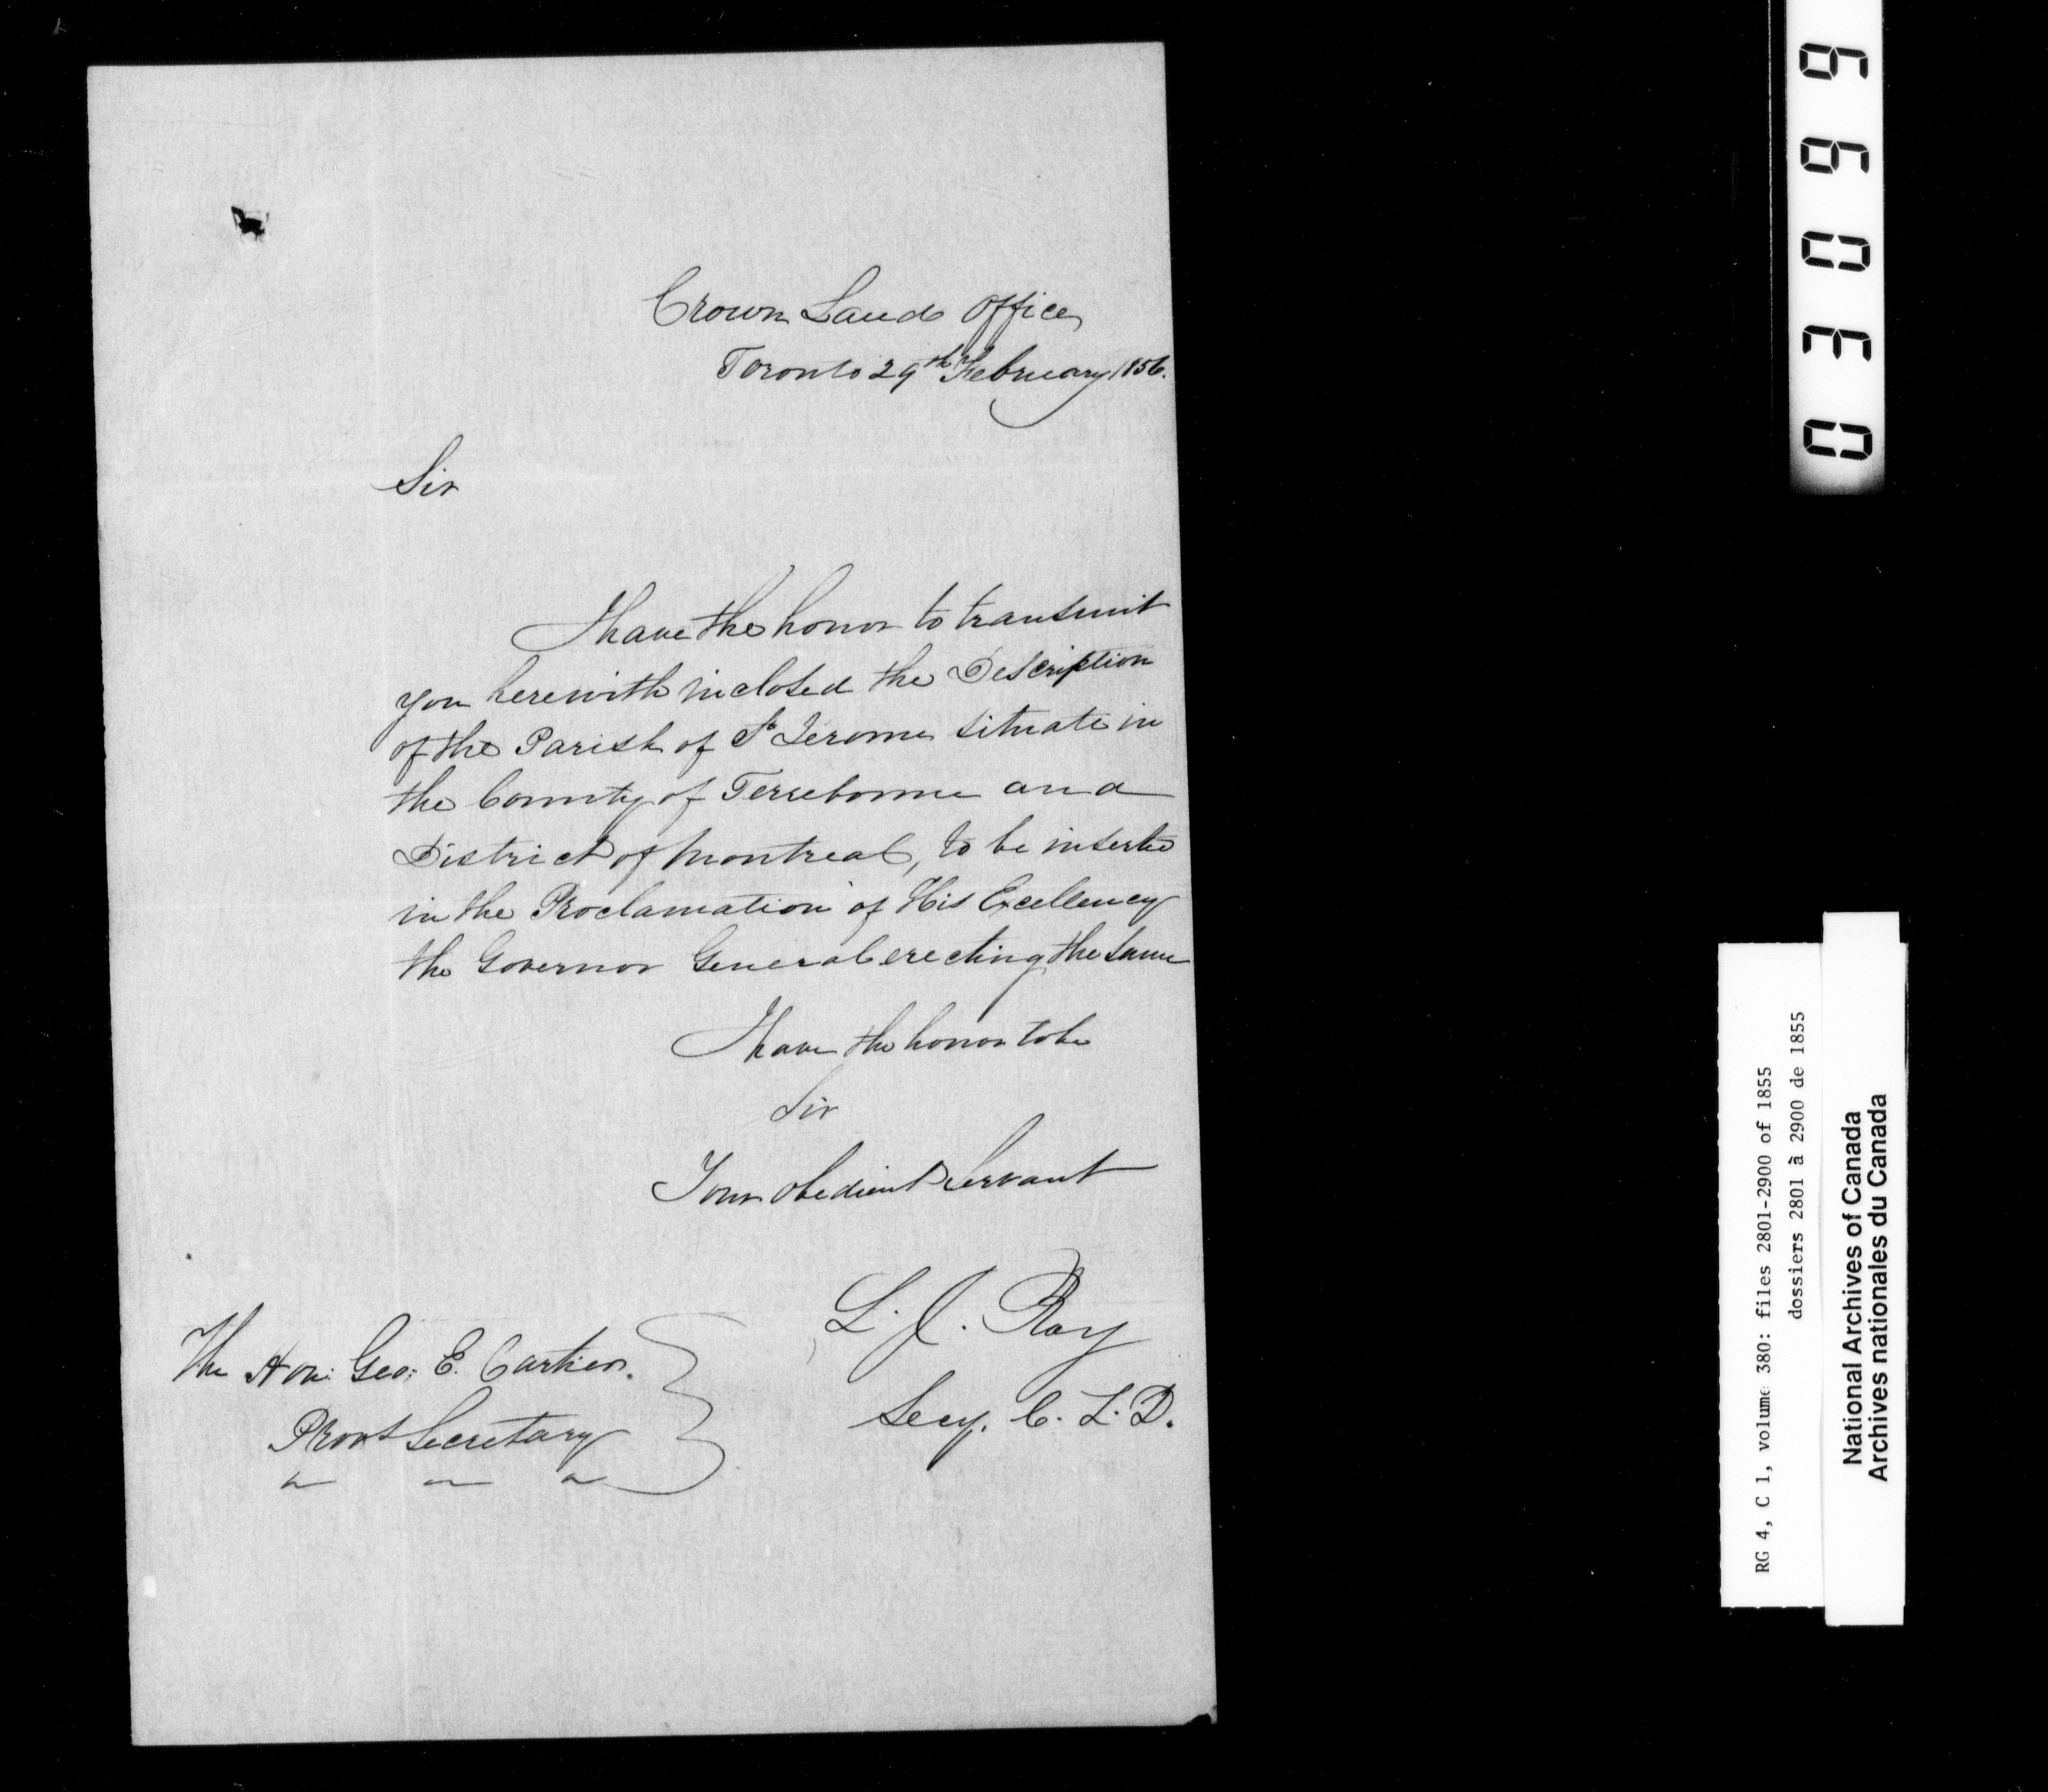 Crown Lands Office
Toronto 29th February 1856.
Sir
I have the honor to transmit
you herewith inclosed the Description
of the Parish of St Jerome situate in
the County of Terrebonne and
District of Montreal, to be inserted
in the Proclamation of His Excellency
the Governor General erecting the same
I have the honor to be
Sir
Your obedient Servant
L. J. Roy
Secy. C. L. D.
The Hon: Geo: E. Cartier.
Provl Secretary
03099
RG 4, C 1, volume 380: files 2801-2900 of 1855
dossiers 2801 à 2900 de 1855
National Archives of Canada
Archives nationales du Canada